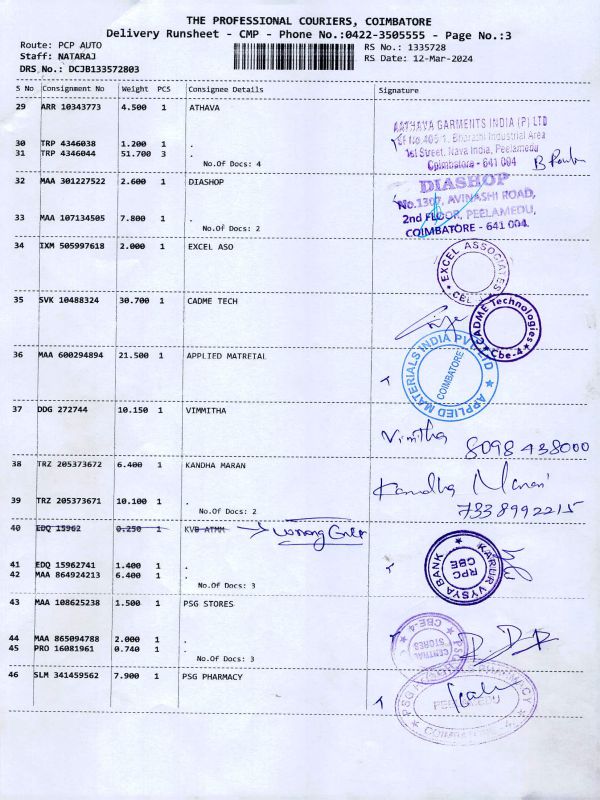 THE PROFESSIONAL COURIERS, COIMBATORE
Delivery Runsheet - CMP - Phone No.:0422-3505555 - Page No.:3
Route: PCP AUTO RS No.: 1335728
Staff: NATARAJ RS Date: 12-Mar-2024
DRS No.: DCJB133572803
S No Consignment No Weight PCS Consignee Details Signature
29 ARR 10343773 4.500 1 ATHAVA
AATHAVA GARMENTS INDIA (P) LTD
SF No.405/1, Bharathi Industrial Area
1st Street, Nava India, Peelamedu
Coimbatore - 641 004
30 TRP 4346038 1.200 1 .
31 TRP 4346044 51.700 3 .
No.Of Docs: 4
32 MAA 301227522 2.600 1 DIASHOP
DIASHOP
No.1307, AVINASHI ROAD,
2nd FLOOR, PEELAMEDU,
COIMBATORE - 641 004.
33 MAA 107134505 7.800 1 .
No.Of Docs: 2
34 IXM 505997618 2.000 1 EXCEL ASO
EXCEL ASSOCIATES
35 SVK 10488324 30.700 1 CADME TECH
CADME Technologies
Cbe-4
36 MAA 600294894 21.500 1 APPLIED MATRETAL
APPLIED MATERIALS INDIA PVT LTD
COIMBATORE
37 DDG 272744 10.150 1 VIMMITHA
Vimitha
8098438000
38 TRZ 205373672 6.400 1 KANDHA MARAN
Kandha Maran
7338992215
39 TRZ 205373671 10.100 1 .
No.Of Docs: 2
40 EDQ 15962 0.250 1 KVB ATMM
41 EDQ 15962741 1.400 1 .
42 MAA 864924213 6.400 1 .
No.Of Docs: 3
KARUR VYSYA BANK
RPC
CBE
43 MAA 108625238 1.500 1 PSG STORES
44 MAA 865094788 2.000 1 .
45 PRO 16081961 0.740 1 .
No.Of Docs: 3
CENTRAL
STORES
CBE-4
46 SLM 341459562 7.900 1 PSG PHARMACY
PEELAMEDU